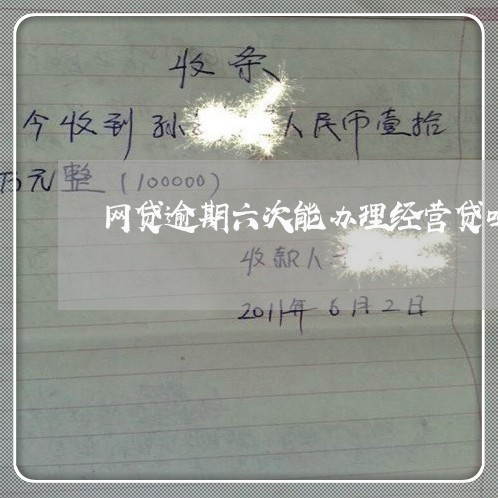 收条
今收到孙 人民币壹拾
万元整（100000）
网贷逾期六次能办理经营贷
收款人
2011年6月2日